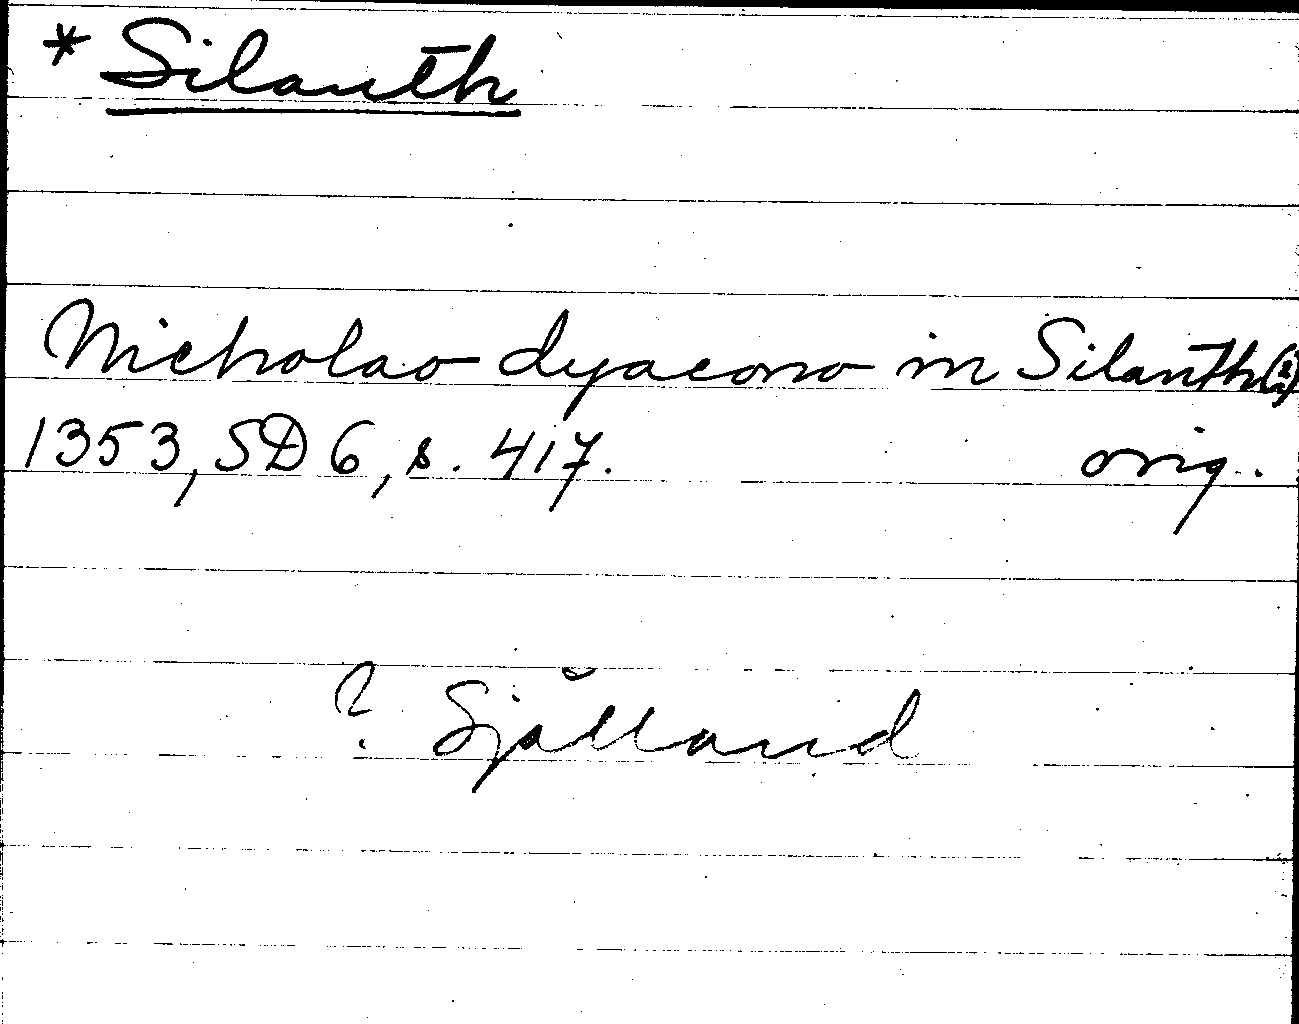 * Silanth
Nicholao dyacono in Silanth
1353, SD 6, s. 417. orig.
? Sjålland